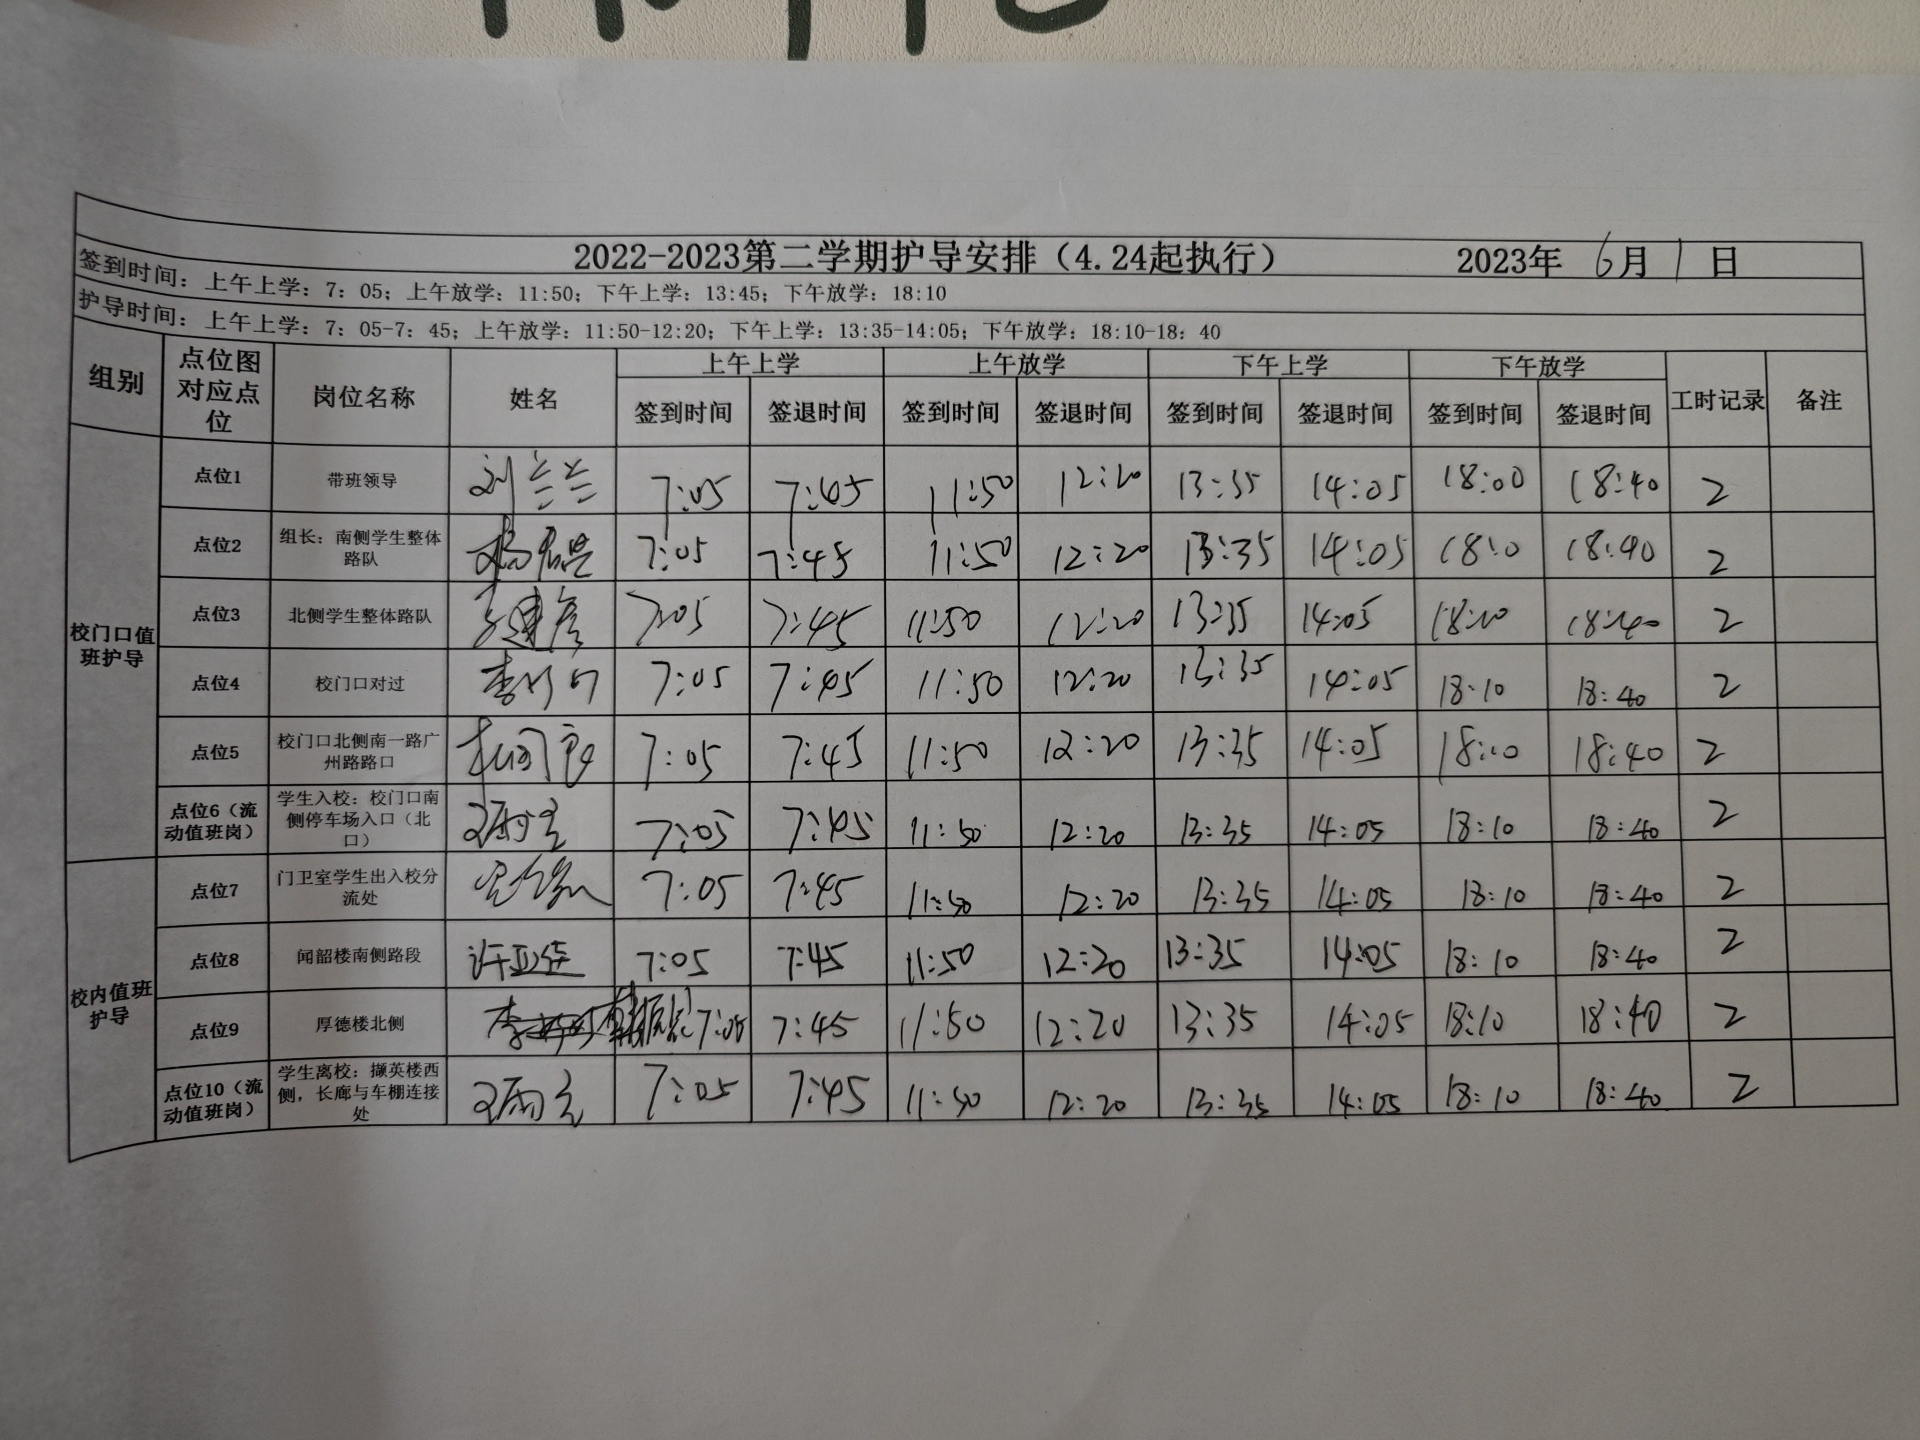 2022-2023第二学期护导安排（4.24起执行） 2023年 6月 1日
签到时间：上午上学：7：05；上午放学：11:50；下午上学：13:45；下午放学：18:10
护导时间：上午上学：7：05-7：45；上午放学：11:50-12:20；下午上学：13:35-14:05；下午放学：18:10-18：40
组别 点位图对应点位 岗位名称 姓名 上午上学 上午放学 下午上学 下午放学 工时记录 备注
签到时间 签退时间 签到时间 签退时间 签到时间 签退时间 签到时间 签退时间
校门口值班护导
点位1 带班领导 刘兰兰 7:05 7:45 11:50 12:20 13:35 14:05 18:00 18:40 2
点位2 组长：南侧学生整体路队 7:05 7:45 11:50 12:20 13:35 14:05 18:10 18:40 2
点位3 北侧学生整体路队 7:05 7:45 11:50 12:20 13:35 14:05 18:10 18:40 2
点位4 校门口对过 7:05 7:45 11:50 12:20 13:35 14:05 18:10 18:40 2
点位5 校门口北侧南一路广州路路口 7:05 7:45 11:50 12:20 13:35 14:05 18:10 18:40 2
点位6（流动值班岗） 学生入校：校门口南侧停车场入口（北口） 7:05 7:45 11:50 12:20 13:35 14:05 18:10 18:40 2
校内值班护导
点位7 门卫室学生出入校分流处 7:05 7:45 11:50 12:20 13:35 14:05 18:10 18:40 2
点位8 闻韶楼南侧路段 7:05 7:45 11:50 12:20 13:35 14:05 18:10 18:40 2
点位9 厚德楼北侧 7:05 7:45 11:50 12:20 13:35 14:05 18:10 18:40 2
点位10（流动值班岗） 学生离校：撷英楼西侧，长廊与车棚连接处 7:05 7:45 11:50 12:20 13:35 14:05 18:10 18:40 2